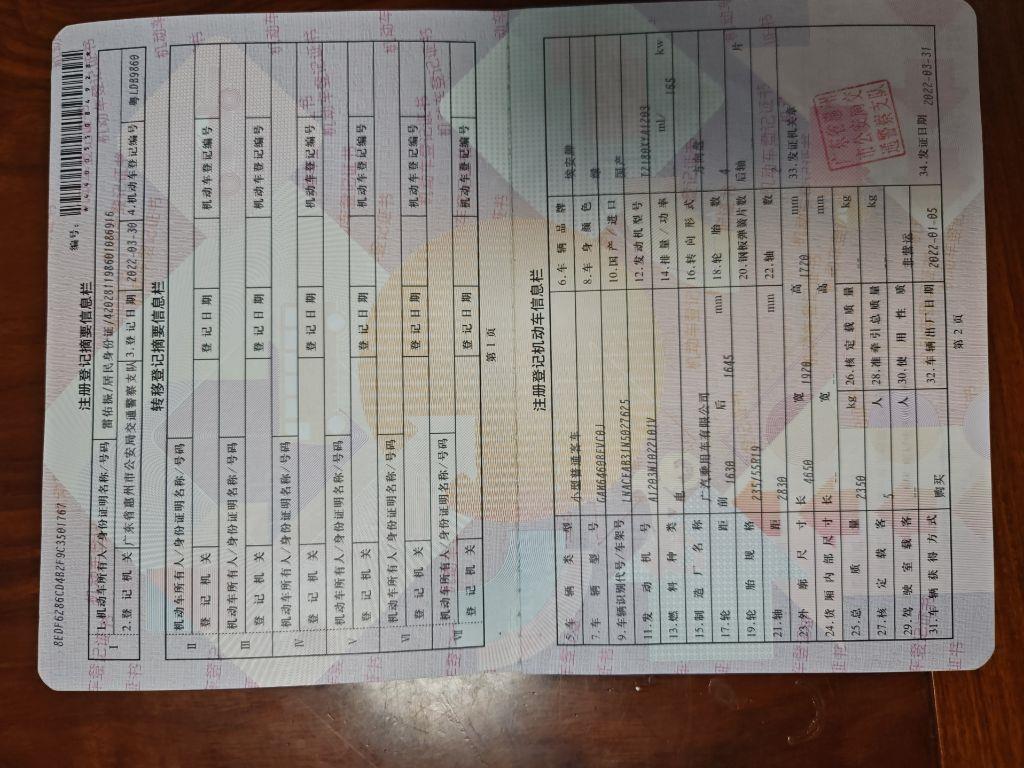 8EDF6286CD4B2F9C3501767
编号:
注册登记摘要信息栏
Ⅰ 1.机动车所有人/身份证明名称/号码 雷佑振/居民身份证/420281198601086916
2.登记机关 广东省惠州市公安局交通警察支队 3.登记日期 2022-03-30 4.机动车登记编号 粤LDB9860
转移登记摘要信息栏
Ⅱ 机动车所有人/身份证明名称/号码
登记机关 登记日期 机动车登记编号
Ⅲ 机动车所有人/身份证明名称/号码
登记机关 登记日期 机动车登记编号
Ⅳ 机动车所有人/身份证明名称/号码
登记机关 登记日期 机动车登记编号
Ⅴ 机动车所有人/身份证明名称/号码
登记机关 登记日期 机动车登记编号
Ⅵ 机动车所有人/身份证明名称/号码
登记机关 登记日期 机动车登记编号
Ⅶ 机动车所有人/身份证明名称/号码
登记机关 登记日期 机动车登记编号
第1页
注册登记机动车信息栏
5.车辆类型 小型普通客车 6.车辆品牌 埃安牌
7.车辆型号 8.车身颜色
9.车辆识别代号/车架号 LNACEAB31N5027625 10.国产/进口 国产
11.发动机号 A1203N1022101V 12.发动机型号
13.燃料种类 电 14.排量/功率 ml/ 165 kw
15.制造厂名称 广汽乘用车有限公司 16.转向形式 方向盘
17.轮距 前 1630 后 1645 mm 18.轮胎数 4
19.轮胎规格 235/55R19 20.钢板弹簧片数 后轴 片
21.轴距 2830 mm 22.轴数 2
23.外廓尺寸 长 4650 宽 1920 高 1720 mm 33.发证机关章
24.货厢内部尺寸 长 宽 高 mm
25.总质量 2350 kg 26.核定载质量 kg
27.核定载客 5 人 28.准牵引总质量 kg
29.驾驶室载客 人 30.使用性质 非营运
31.车辆获得方式 购买 32.车辆出厂日期 2022-01-05 34.发证日期 2022-03-31
第2页